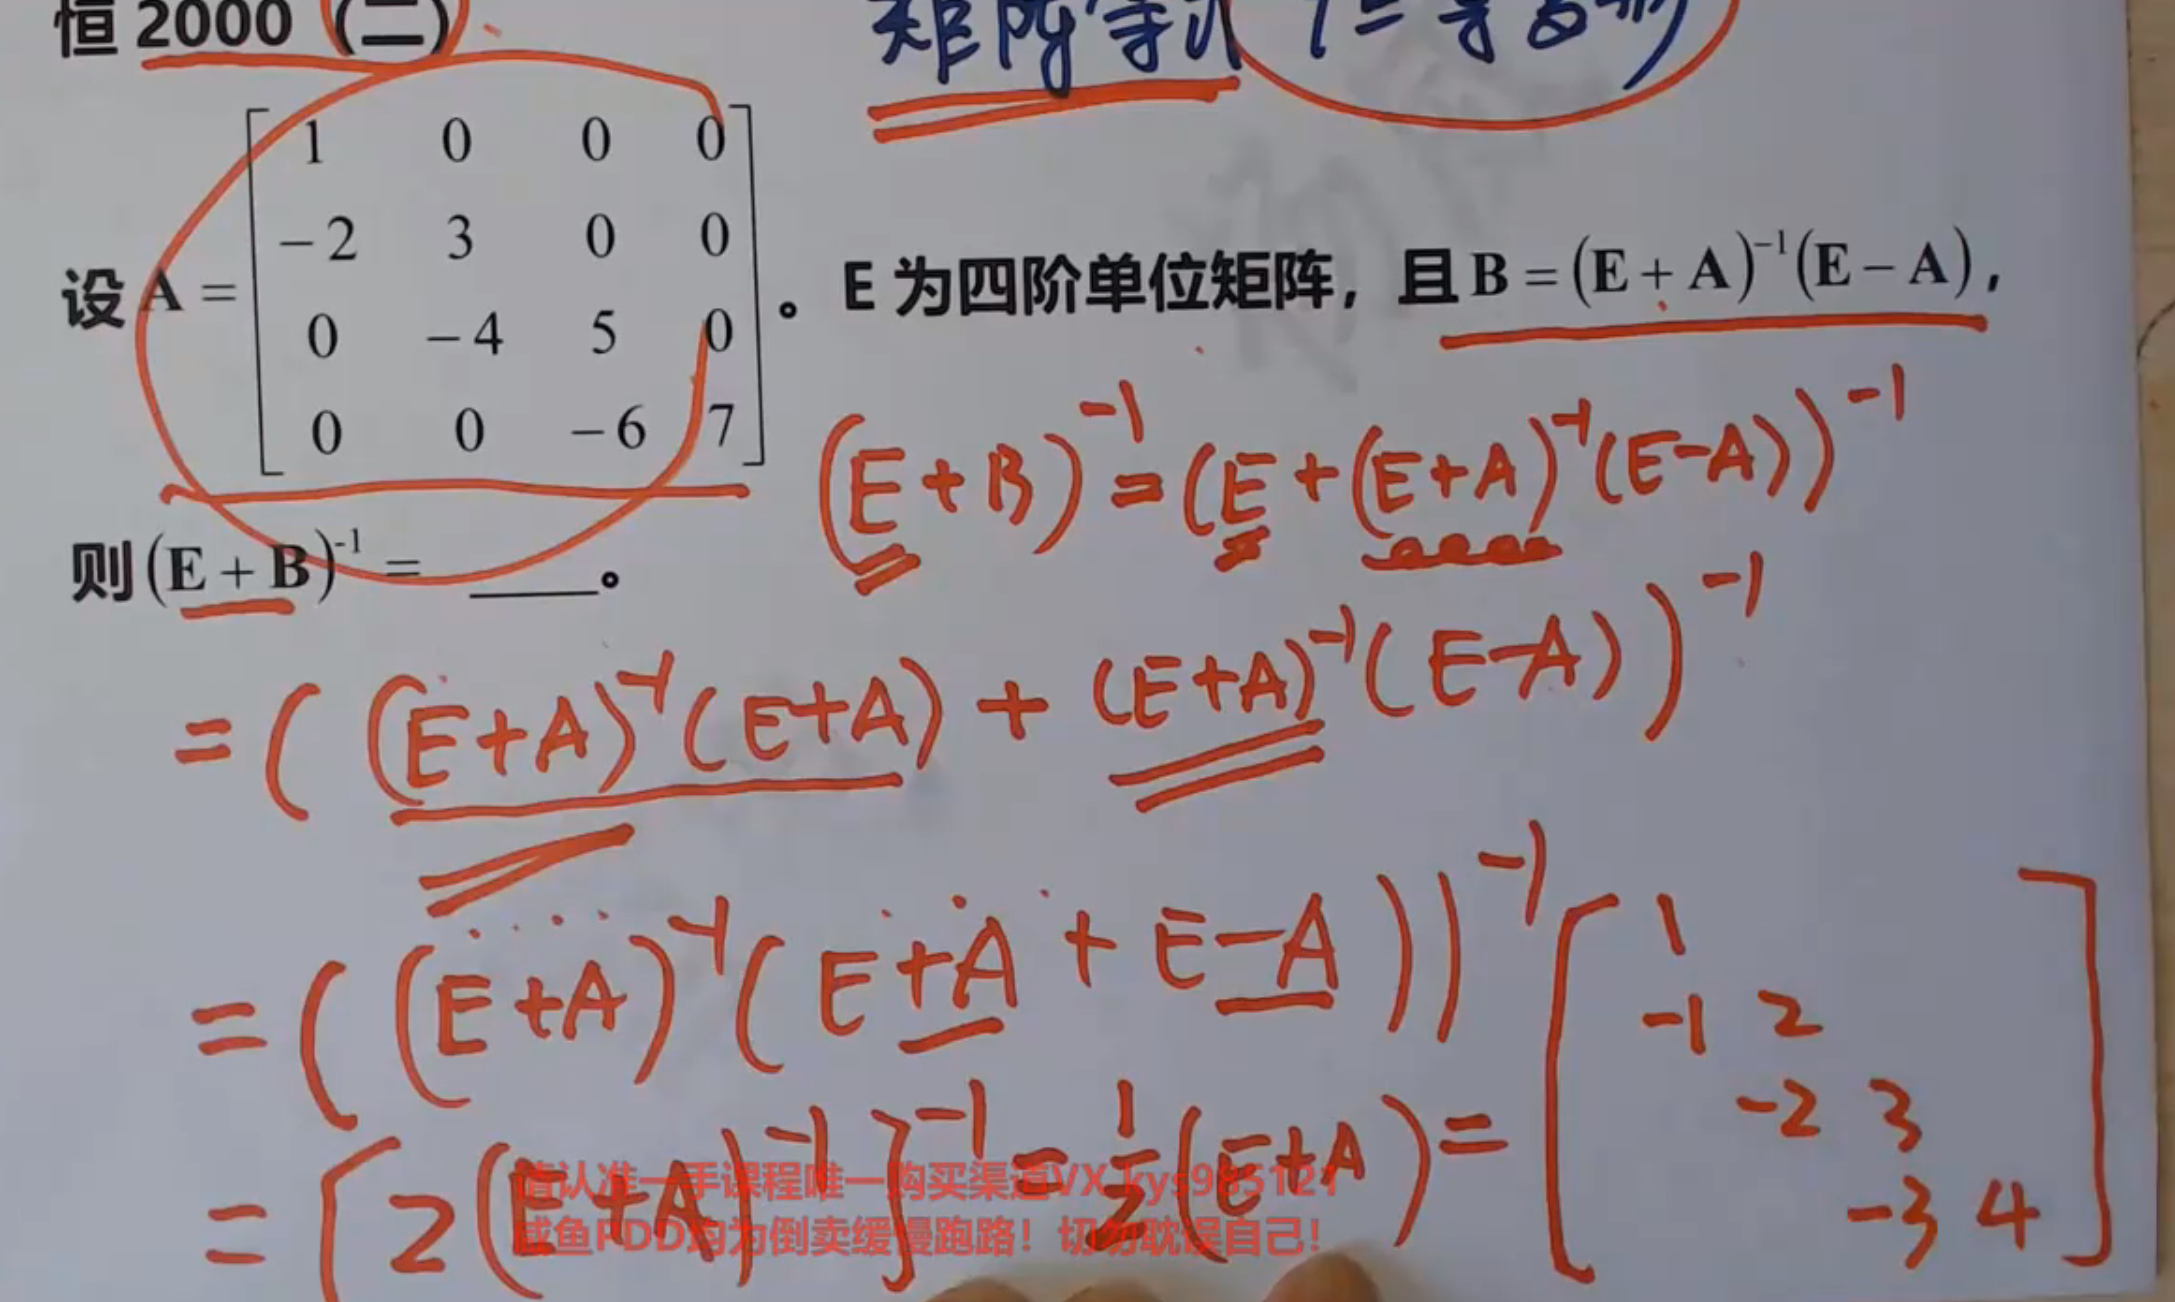 恒 2000 (二)
矩阵等式 恒等变形
设 A = [ 1 0 0 0
-2 3 0 0
0 -4 5 0
0 0 -6 7 ] 。E 为四阶单位矩阵，且 B = (E + A)⁻¹(E − A)，
则 (E + B)⁻¹ = ____。
(E+B)⁻¹ = (E+(E+A)⁻¹(E-A))⁻¹
= ((E+A)⁻¹(E+A) + (E+A)⁻¹(E-A))⁻¹
= ((E+A)⁻¹(E+A+E-A))⁻¹
= [2(E+A)⁻¹]⁻¹ = 1/2(E+A) = [ 1
-1 2
-2 3
-3 4 ]
请认准一手课程唯一购买渠道VX kys985121
咸鱼PDD均为倒卖缓慢跑路！切勿耽误自己！